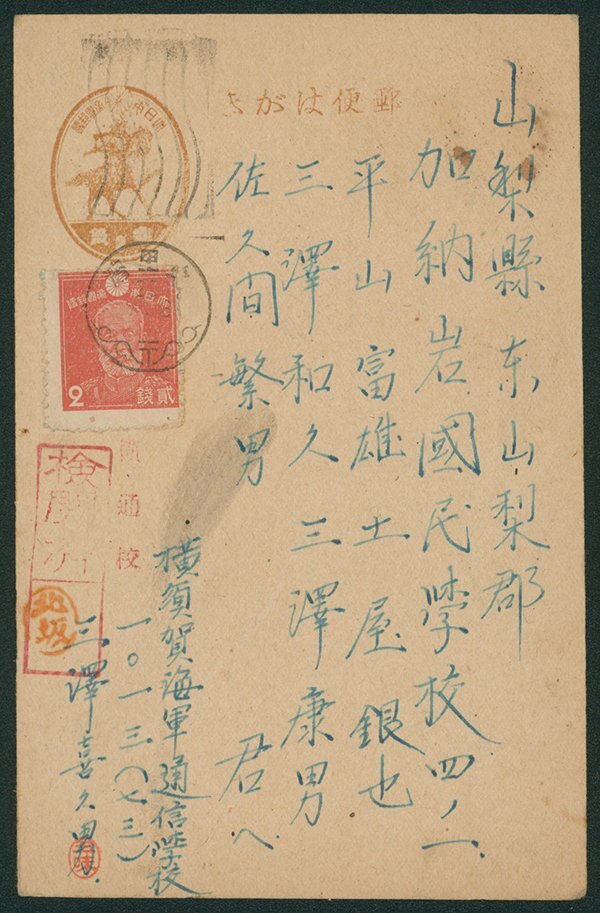 郵便はがき
山梨縣东山梨郡
加納岩國民學校四ノ一
平山富雄 土屋銀也
三澤和久 三澤康男
佐久間繁男 君へ
横須賀海軍通信學校
一〇一三(七三)
三澤喜久男
大日本帝國郵便
2 貳錢
通校
検
北坂